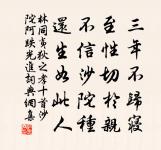 三年不歸寢
至性切於親
不信沙陀種
還生如此人
林同夷狄之孝十首沙
陀阿跌光進詞典網集